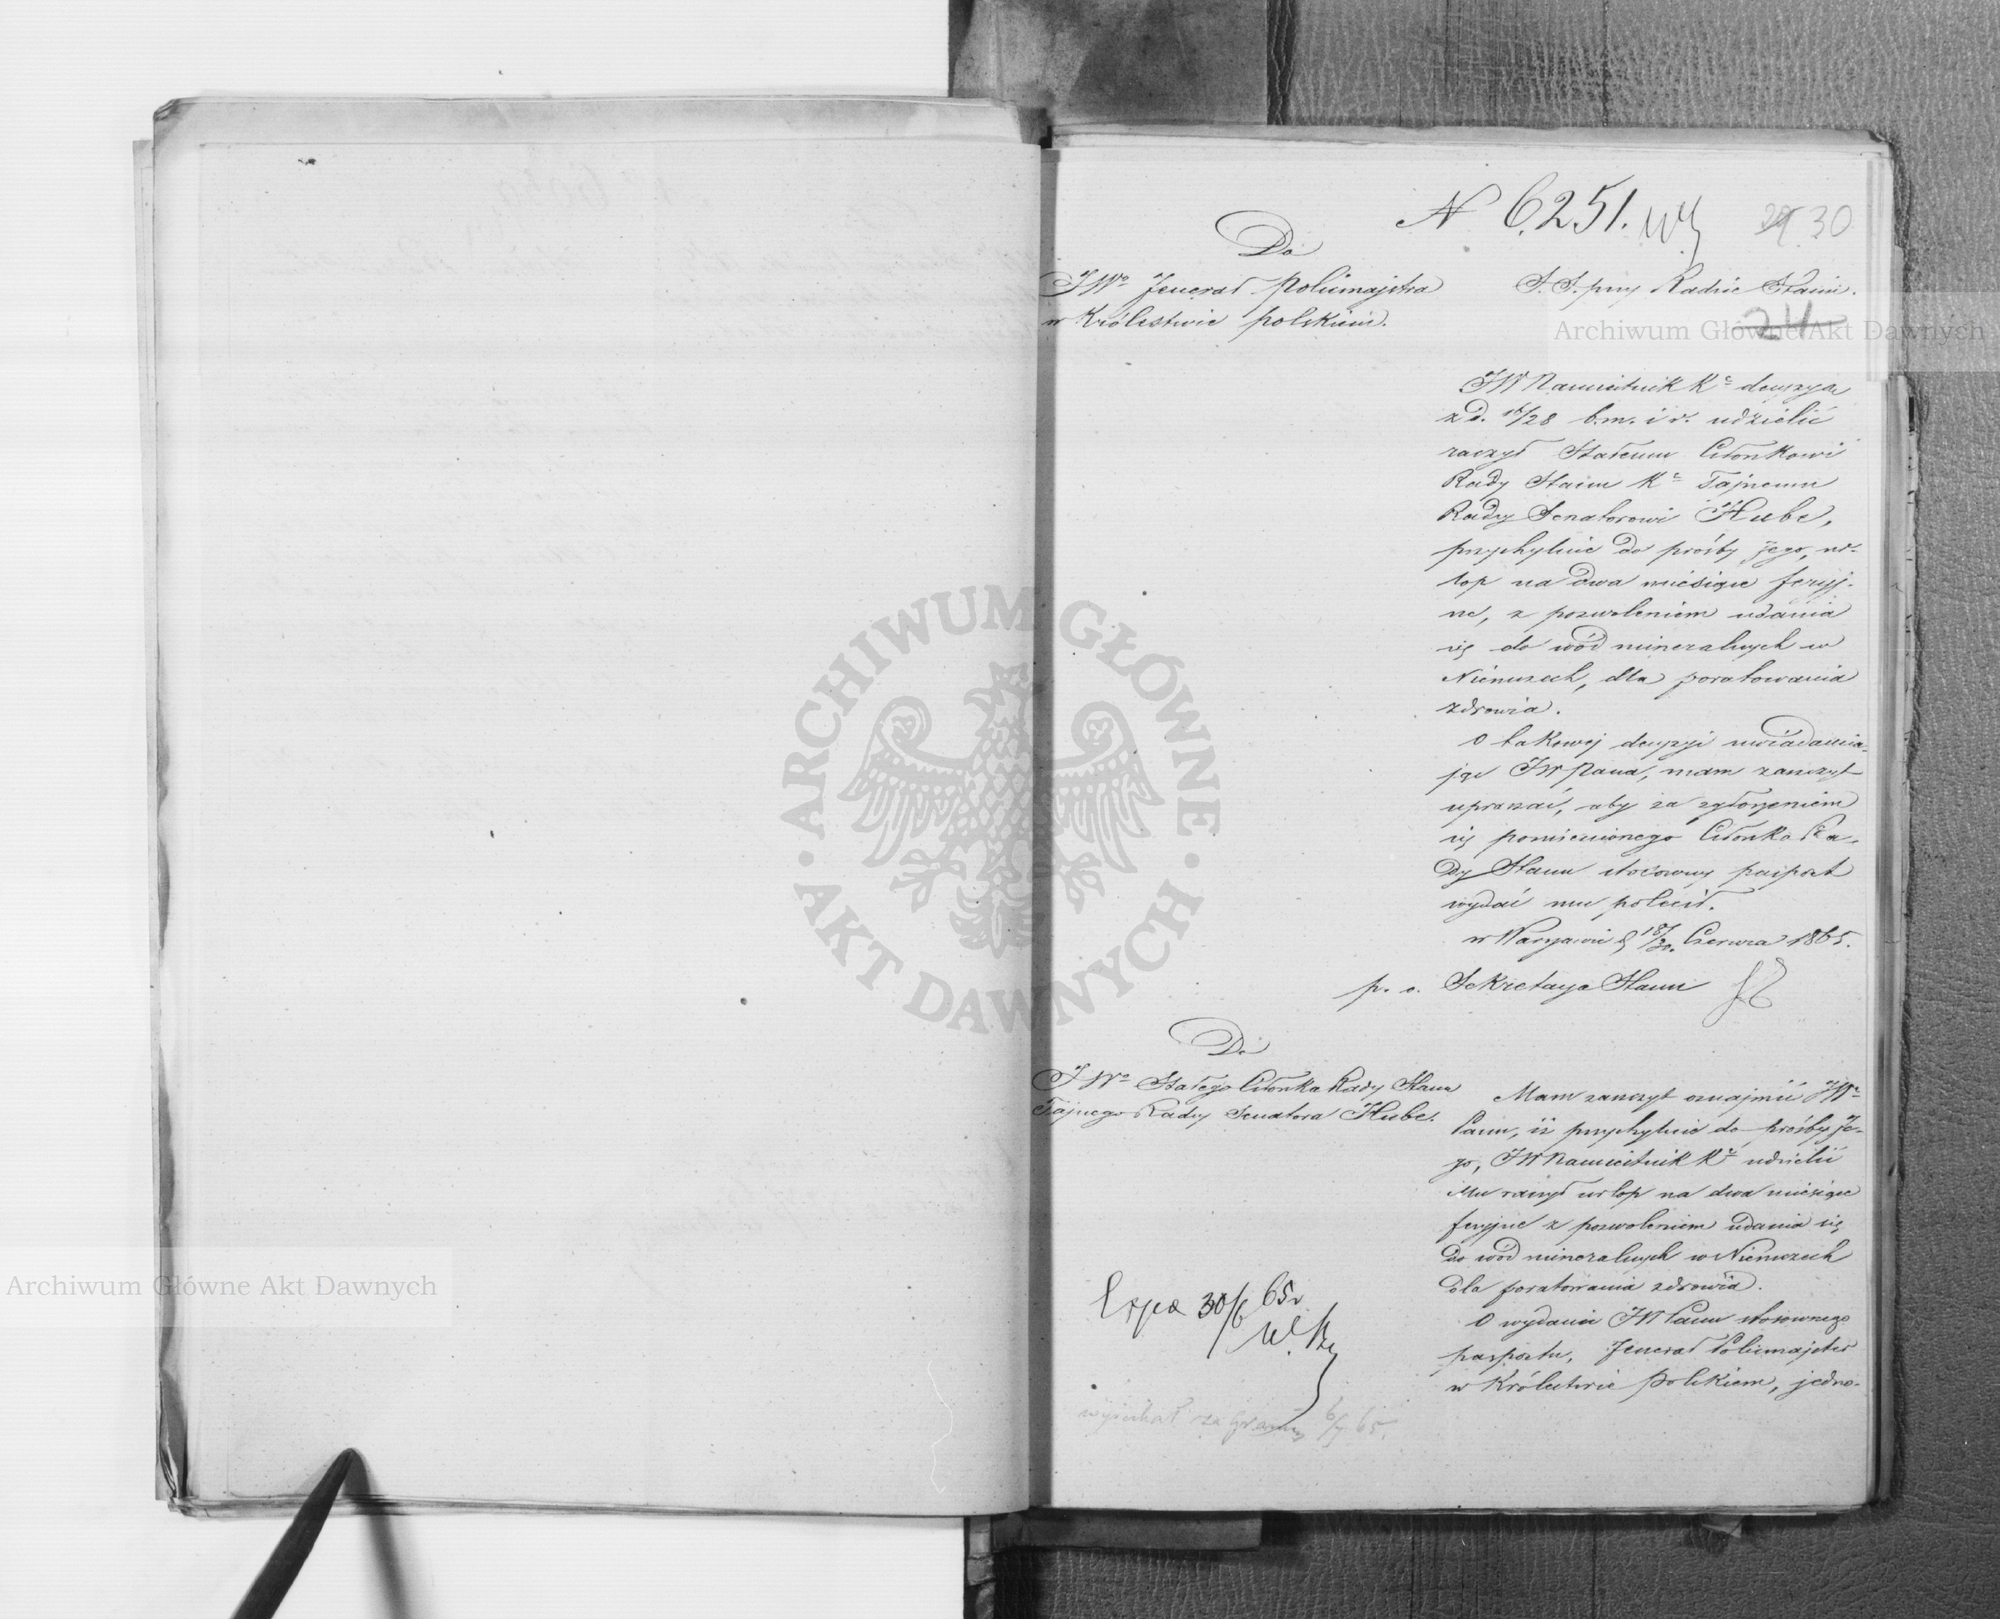 N 6251.
29. 30
Do
JWo Jenerał Policmajstra
w Królestwie Polskiém.
S. S. przy Radzie Stanu.
24
JW Namiestnik Kr. decyzyą
z d. 16/28 b.m. i r. udzielić
raczył Stałemu Członkowi
Rady Stanu Kr. Tajnemu
Radcy Senatorowi Hube,
przychylnie do prośby jego, ur-
lop na dwa miesiące feryj-
ne, z pozwoleniem udania
się do wód mineralnych w
Niemczech, dla poratowania
zdrowia.
O takowej decyzyi uwiadamia-
jąc JW Pana, mam zaszczyt
upraszać, aby za zgłoszeniem
się pomienionego Członka Ra-
dy Stanu stosowny pasport
wydać mu polecił.
w Warszawie d. 18/30. Czerwca 1865.
p. o. Sekretarza Stanu
Do
JWo Stałego Członka Rady Stanu
Tajnego Radcy Senatora Hube.
Mam zaszczyt oznajmić JW
Panu, iż przychylnie do prośby Je-
go, JW Namiestnik Kr. udzielić
Mu raczył urlop na dwa miesiące
feryjne z pozwoleniem udania się
do wód mineralnych w Niemczech
dla poratowania zdrowia.
O wydanie JW Panu stosownego
pasportu, Jenerał Policmajster
w Królestwie Polskiem, jedno-
Exped 30/6 65
wyjechał za granicę 6/7 65.
Archiwum Główne Akt Dawnych
Archiwum Główne Akt Dawnych
ARCHIWUM GŁÓWNE · AKT DAWNYCH ·